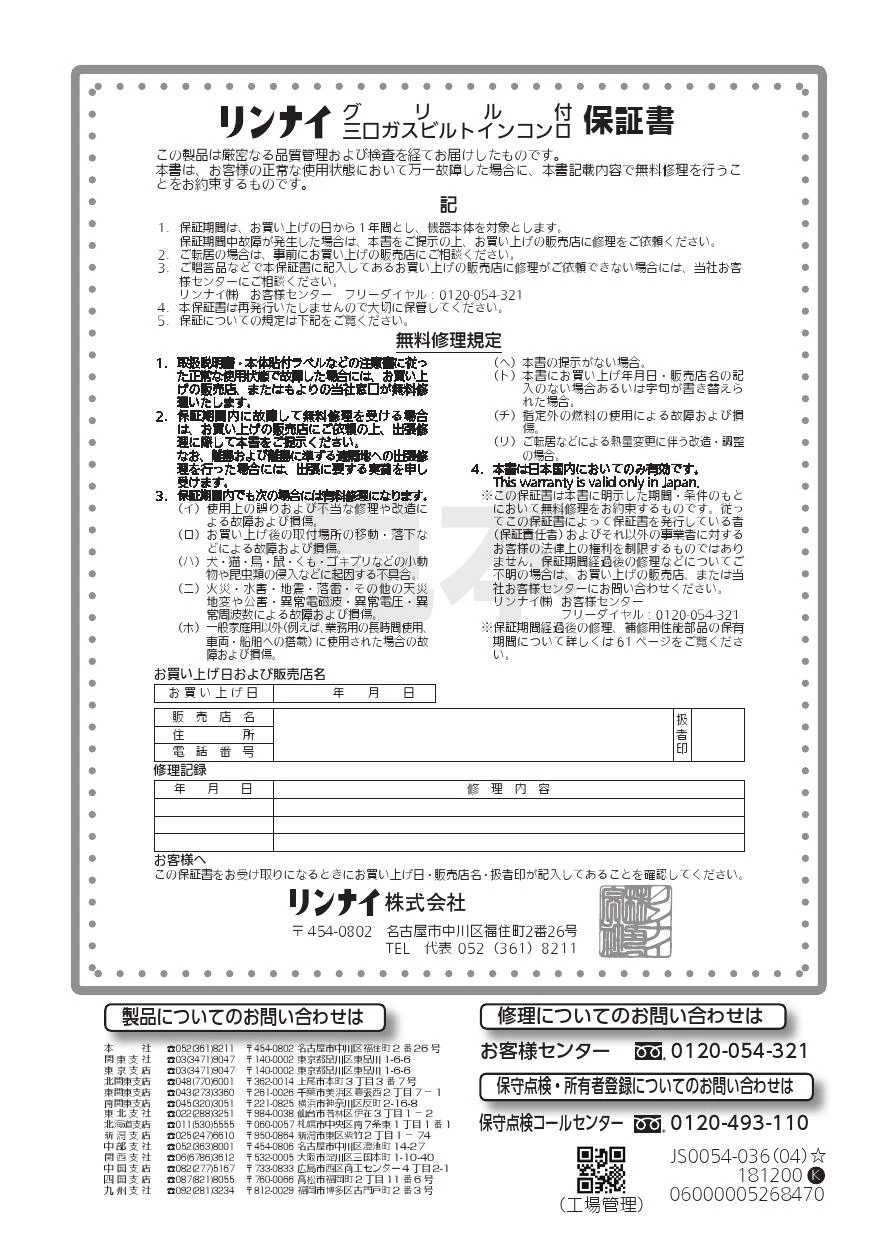 リンナイ グリル付 三口ガスビルトインコンロ 保証書
この製品は厳密なる品質管理および検査を経てお届けしたものです。
本書は、お客様の正常な使用状態において万一故障した場合に、本書記載内容で無料修理を行うこ
とをお約束するものです。
記
1. 保証期間は、お買い上げの日から1年間とし、機器本体を対象とします。
保証期間中故障が発生した場合は、本書をご提示の上、お買い上げの販売店に修理をご依頼ください。
2. ご転居の場合は、事前にお買い上げの販売店にご相談ください。
3. ご贈答品などで本保証書に記入してあるお買い上げの販売店に修理がご依頼できない場合には、当社お客
様センターにご相談ください。
リンナイ㈱ お客様センター フリーダイヤル:0120-054-321
4. 本保証書は再発行いたしませんので大切に保管してください。
5. 保証についての規定は下記をご覧ください。
無料修理規定
1. 取扱説明書・本体貼付ラベルなどの注意書に従っ
た正常な使用状態で故障した場合には、お買い上
げの販売店、またはもよりの当社窓口が無料修
理いたします。
2. 保証期間内に故障して無料修理を受ける場合
は、お買い上げの販売店にご依頼の上、出張修
理に際して本書をご提示ください。
なお、離島および離島に準ずる遠隔地への出張修
理を行った場合には、出張に要する実費を申し
受けます。
3. 保証期間内でも次の場合には有料修理になります。
(イ)使用上の誤りおよび不当な修理や改造に
よる故障および損傷。
(ロ)お買い上げ後の取付場所の移動・落下な
どによる故障および損傷。
(ハ)犬・猫・鳥・鼠・くも・ゴキブリなどの小動
物や昆虫類の侵入などに起因する不具合。
(ニ)火災・水害・地震・落雷・その他の天災
地変や公害・異常電磁波・異常電圧・異
常周波数による故障および損傷。
(ホ)一般家庭用以外(例えば、業務用の長時間使用、
車両・船舶への搭載)に使用された場合の故
障および損傷。
(ヘ)本書の提示がない場合。
(ト)本書にお買い上げ年月日・販売店名の記
入のない場合あるいは字句が書き替えら
れた場合。
(チ)指定外の燃料の使用による故障および損
傷。
(リ)ご転居などによる熱量変更に伴う改造・調整
の場合。
4. 本書は日本国内においてのみ有効です。
This warranty is valid only in Japan.
※この保証書は本書に明示した期間・条件のもと
において無料修理をお約束するものです。従っ
てこの保証書によって保証書を発行している者
(保証責任者)およびそれ以外の事業者に対する
お客様の法律上の権利を制限するものではあり
ません。保証期間経過後の修理などについてご
不明の場合は、お買い上げの販売店、または当
社お客様センターにお問い合わせください。
リンナイ㈱ お客様センター
フリーダイヤル:0120-054-321
※保証期間経過後の修理、補修用性能部品の保有
期間について詳しくは61ページをご覧くださ
い。
見本
お買い上げ日および販売店名
お買い上げ日 年 月 日
販売店名
住所
電話番号
扱者印
修理記録
年 月 日 修理内容
お客様へ
この保証書をお受け取りになるときにお買い上げ日・販売店名・扱者印が記入してあることを確認してください。
リンナイ株式会社
〒454-0802 名古屋市中川区福住町2番26号
TEL 代表 052(361)8211
製品についてのお問い合わせは
本社 ☎052(361)8211 〒454-0802 名古屋市中川区福住町2番26号
関東支社 ☎03(3471)9047 〒140-0002 東京都品川区東品川1-6-6
東京支店 ☎03(3471)9047 〒140-0002 東京都品川区東品川1-6-6
北関東支店 ☎048(770)6001 〒362-0014 上尾市本町3丁目3番7号
東関東支店 ☎043(273)3360 〒261-0026 千葉市美浜区幕張西2丁目7-1
南関東支店 ☎045(320)3051 〒221-0825 横浜市神奈川区反町2-16-8
東北支社 ☎022(288)3251 〒984-0038 仙台市若林区伊在3丁目1-2
北海道支店 ☎011(530)5555 〒060-0057 札幌市中央区南7条東1丁目1番1
新潟支店 ☎025(247)6610 〒950-0864 新潟市東区紫竹2丁目1-74
中部支社 ☎052(363)8001 〒454-0806 名古屋市中川区澄池町14-27
関西支社 ☎06(6786)3612 〒532-0005 大阪市淀川区三国本町1-10-40
中国支店 ☎082(277)5167 〒733-0833 広島市西区商工センター4丁目2-1
四国支店 ☎087(821)8055 〒760-0066 高松市福岡町2丁目11番6号
九州支社 ☎092(281)3234 〒812-0029 福岡市博多区古門戸町2番3号
修理についてのお問い合わせは
お客様センター 0120-054-321
保守点検・所有者登録についてのお問い合わせは
保守点検コールセンター 0120-493-110
JS0054-036(04)☆
181200 K
06000005268470
(工場管理)